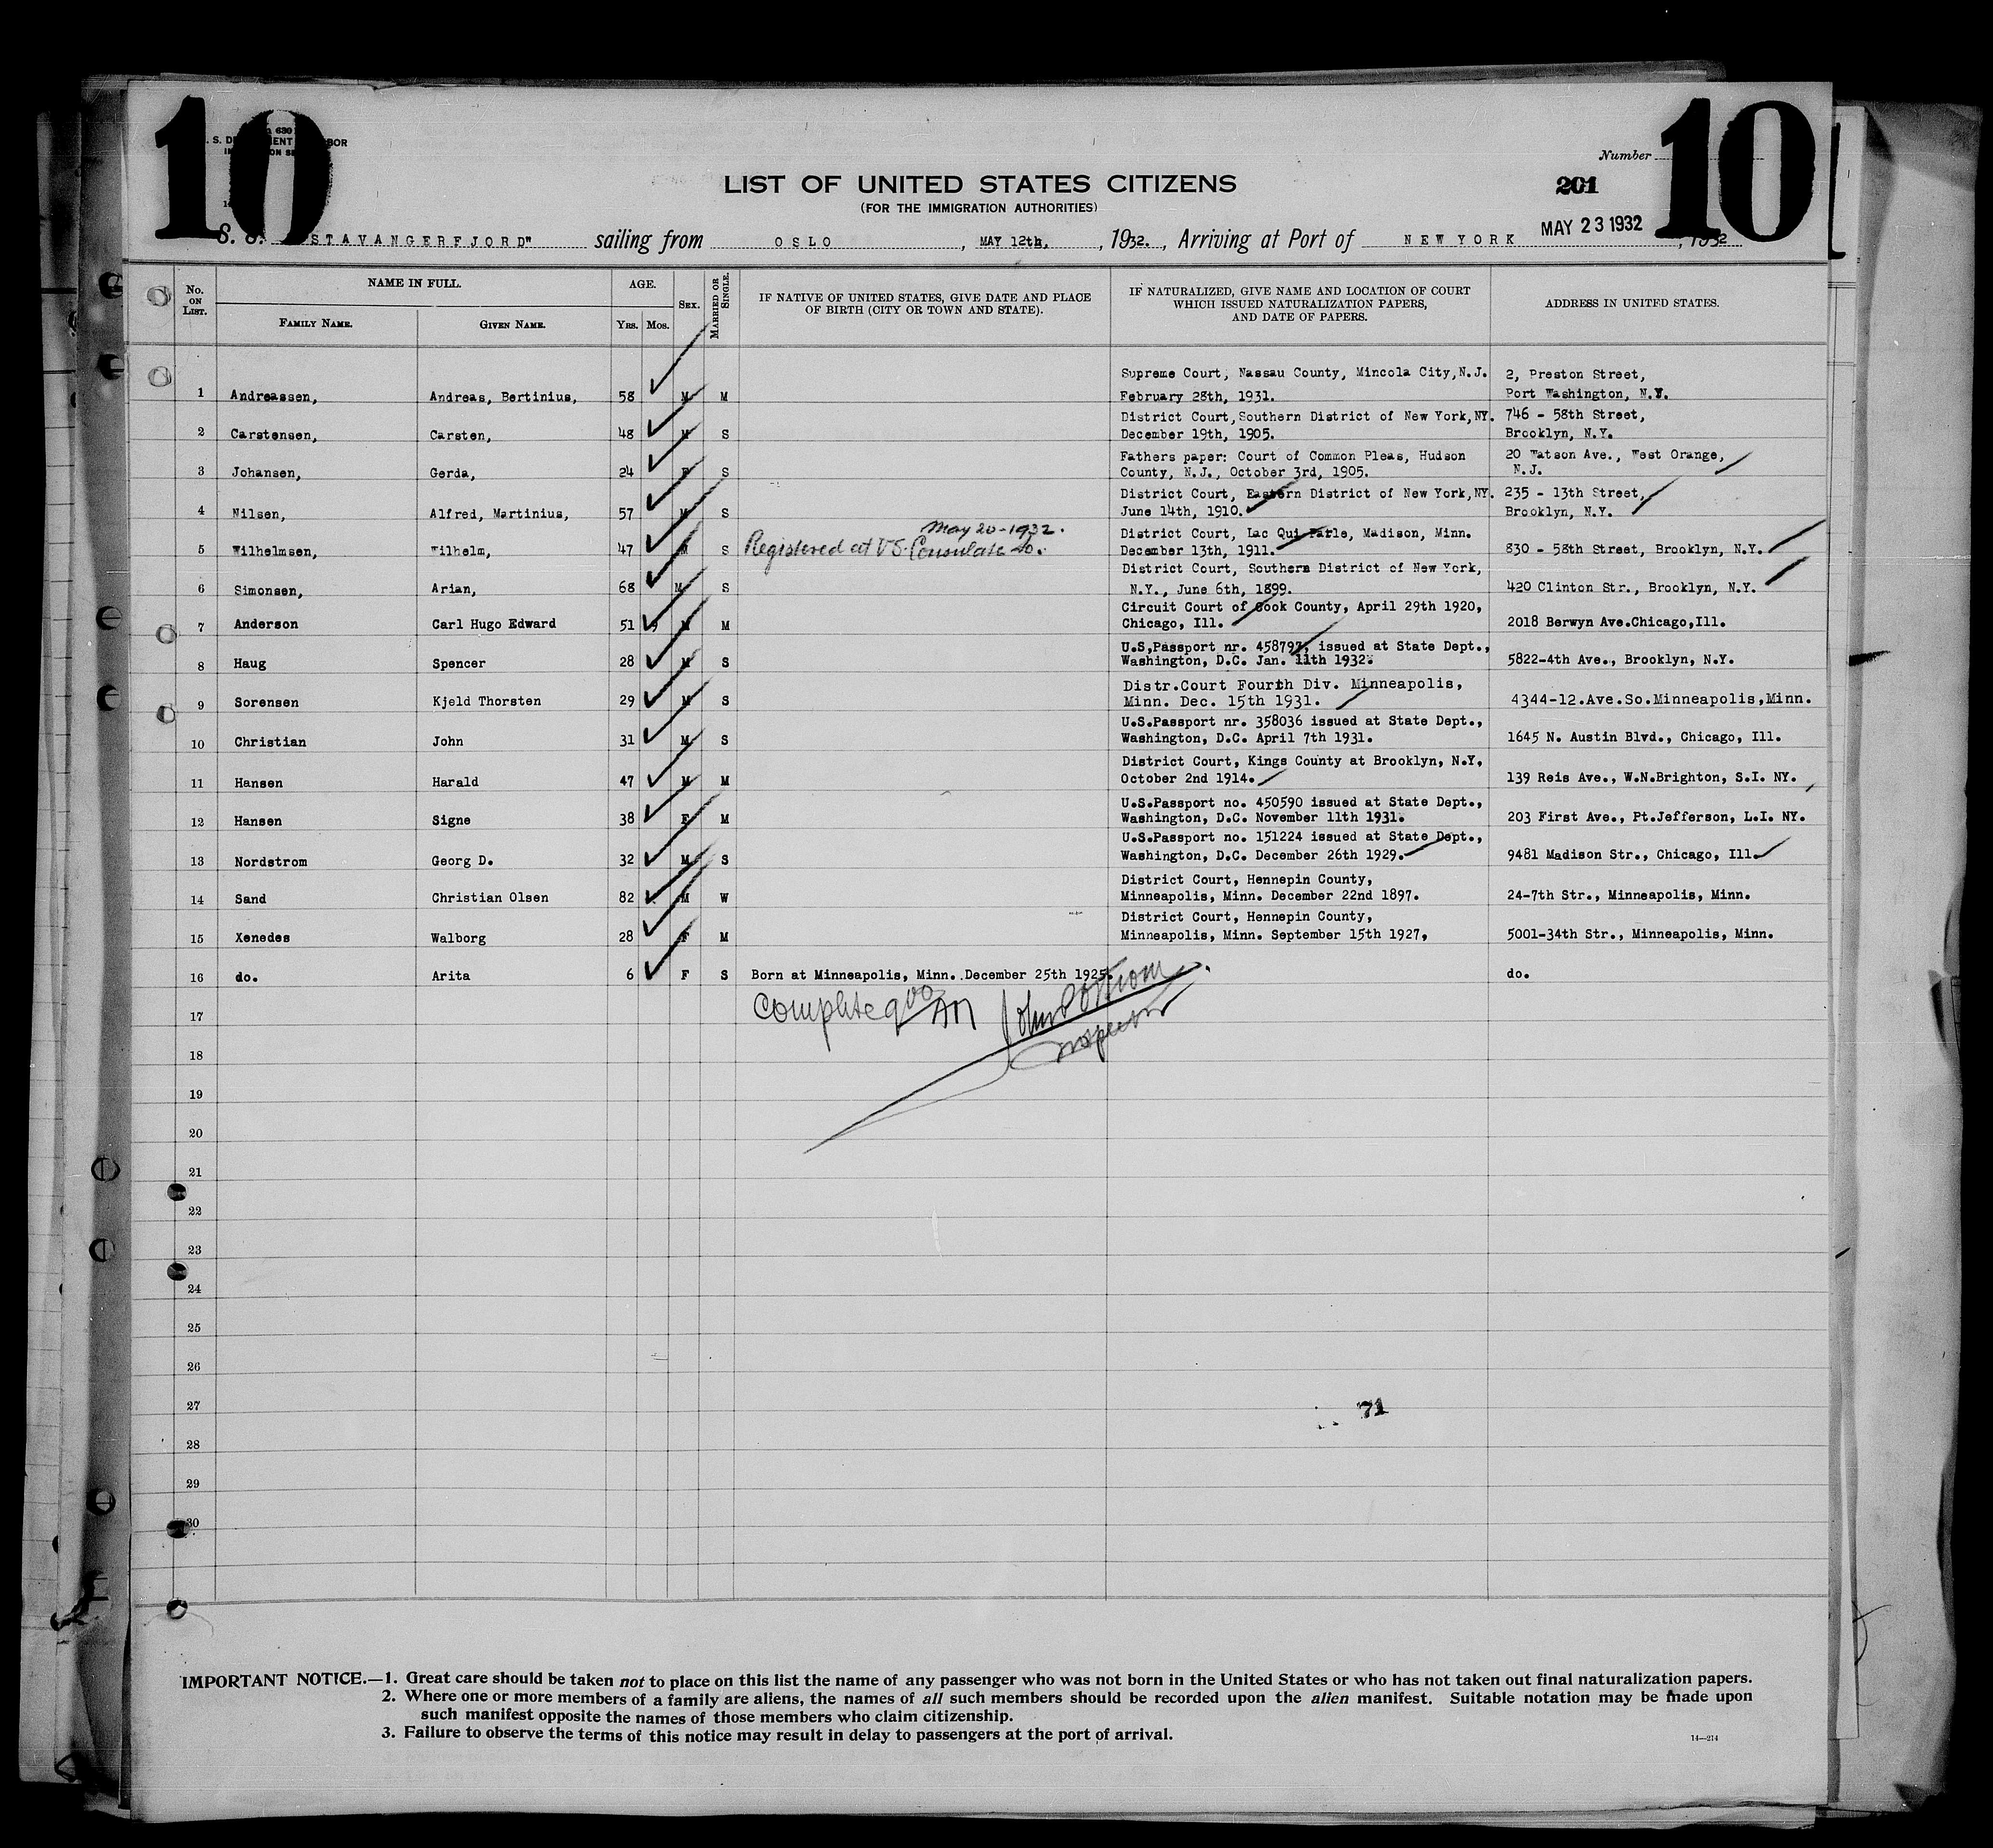 10 10
630
S. D MENT BOR
Number
LIST OF UNITED STATES CITIZENS
201
(FOR THE IMMIGRATION AUTHORITIES)
S. S. STAVANGERFJORD" sailing from OSLO, MAY 12th, 1932., Arriving at Port of NEW YORK MAY 23 1932, 1932
No. ON LIST. NAME IN FULL. AGE. SEX. MARRIED OR SINGLE. IF NATIVE OF UNITED STATES, GIVE DATE AND PLACE OF BIRTH (CITY OR TOWN AND STATE). IF NATURALIZED, GIVE NAME AND LOCATION OF COURT WHICH ISSUED NATURALIZATION PAPERS, AND DATE OF PAPERS. ADDRESS IN UNITED STATES.
FAMILY NAME. GIVEN NAME. YRS. MOS.
Supreme Court, Nassau County, Mincola City, N.J. 2, Preston Street,
1 Andreassen, Andreas, Bertinius, 58 M M February 28th, 1931. Port Washington, N.Y.
District Court, Southern District of New York, NY. 746 - 58th Street,
2 Carstensen, Carsten, 48 M S December 19th, 1905. Brooklyn, N.Y.
Fathers paper: Court of Common Pleas, Hudson 20 Watson Ave., West Orange,
3 Johansen, Gerda, 24 F S County, N.J., October 3rd, 1905. N.J.
District Court, Eastern District of New York, NY. 235 - 13th Street,
4 Nilsen, Alfred, Martinius, 57 M S June 14th, 1910. Brooklyn, N.Y.
May 20-1932. District Court, Lac Qui Parle, Madison, Minn.
5 Wilhelmsen, Wilhelm, 47 M S Registered at U.S. Consulate December 13th, 1911. 830 - 58th Street, Brooklyn, N.Y.
District Court, Southern District of New York,
6 Simonsen, Arian, 68 M S N.Y., June 6th, 1899. 420 Clinton Str., Brooklyn, N.Y.
Circuit Court of Cook County, April 29th 1920,
7 Anderson Carl Hugo Edward 51 9 M M Chicago, Ill. 2018 Berwyn Ave.Chicago,Ill.
U.S,Passport nr. 458797, issued at State Dept.,
8 Haug Spencer 28 M S Washington, D.C. Jan. 11th 1932. 5822-4th Ave., Brooklyn, N.Y.
Distr.Court Fourth Div. Minneapolis,
9 Sorensen Kjeld Thorsten 29 M S Minn. Dec. 15th 1931. 4344-12.Ave.So.Minneapolis,Minn.
U.S.Passport nr. 358036 issued at State Dept.,
10 Christian John 31 M S Washington, D.C. April 7th 1931. 1645 N. Austin Blvd., Chicago, Ill.
District Court, Kings County at Brooklyn, N.Y,
11 Hansen Harald 47 M M October 2nd 1914. 139 Reis Ave., W.N.Brighton, S.I. NY.
U.S.Passport no. 450590 issued at State Dept.,
12 Hansen Signe 38 F M Washington, D.C. November 11th 1931. 203 First Ave., Pt.Jefferson, L.I. NY.
U.S.Passport no. 151224 issued at State Dept.,
13 Nordstrom Georg D. 32 M S Washington, D.C. December 26th 1929. 9481 Madison Str., Chicago, Ill.
District Court, Hennepin County,
14 Sand Christian Olsen 82 M W Minneapolis, Minn. December 22nd 1897. 24-7th Str., Minneapolis, Minn.
District Court, Hennepin County,
15 Xenedes Walborg 28 F M Minneapolis, Minn. September 15th 1927, 5001-34th Str., Minneapolis, Minn.
16 do. Arita 6 F S Born at Minneapolis, Minn. December 25th 1925. do.
17 Complete 9 00 AM
Inspector
18
19
20
21
22
23
24
25
26
27 71
28
29
30
IMPORTANT NOTICE.—1. Great care should be taken not to place on this list the name of any passenger who was not born in the United States or who has not taken out final naturalization papers.
2. Where one or more members of a family are aliens, the names of all such members should be recorded upon the alien manifest. Suitable notation may be made upon
such manifest opposite the names of those members who claim citizenship.
3. Failure to observe the terms of this notice may result in delay to passengers at the port of arrival.
14—214